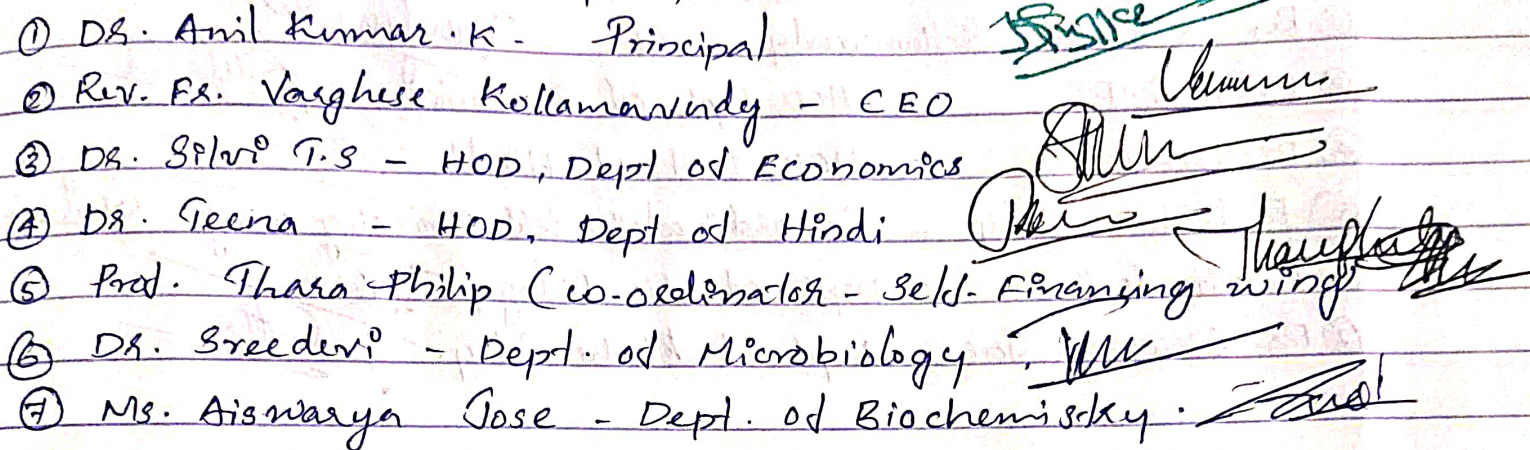 ① Dr. Anil Kumar . K - Principal
② Rev. Fr. Varghese Kollamavudy - CEO
③ Dr. Silvi T.S - HOD, Dept of Economics
④ Dr. Teena - HOD, Dept of Hindi
⑤ Prof. Thara Philip (Co-ordinator - Self-Financing wing
⑥ Dr. Sreedevi - Dept. of Microbiology
⑦ Ms. Aiswarya Jose - Dept. of Biochemistry.